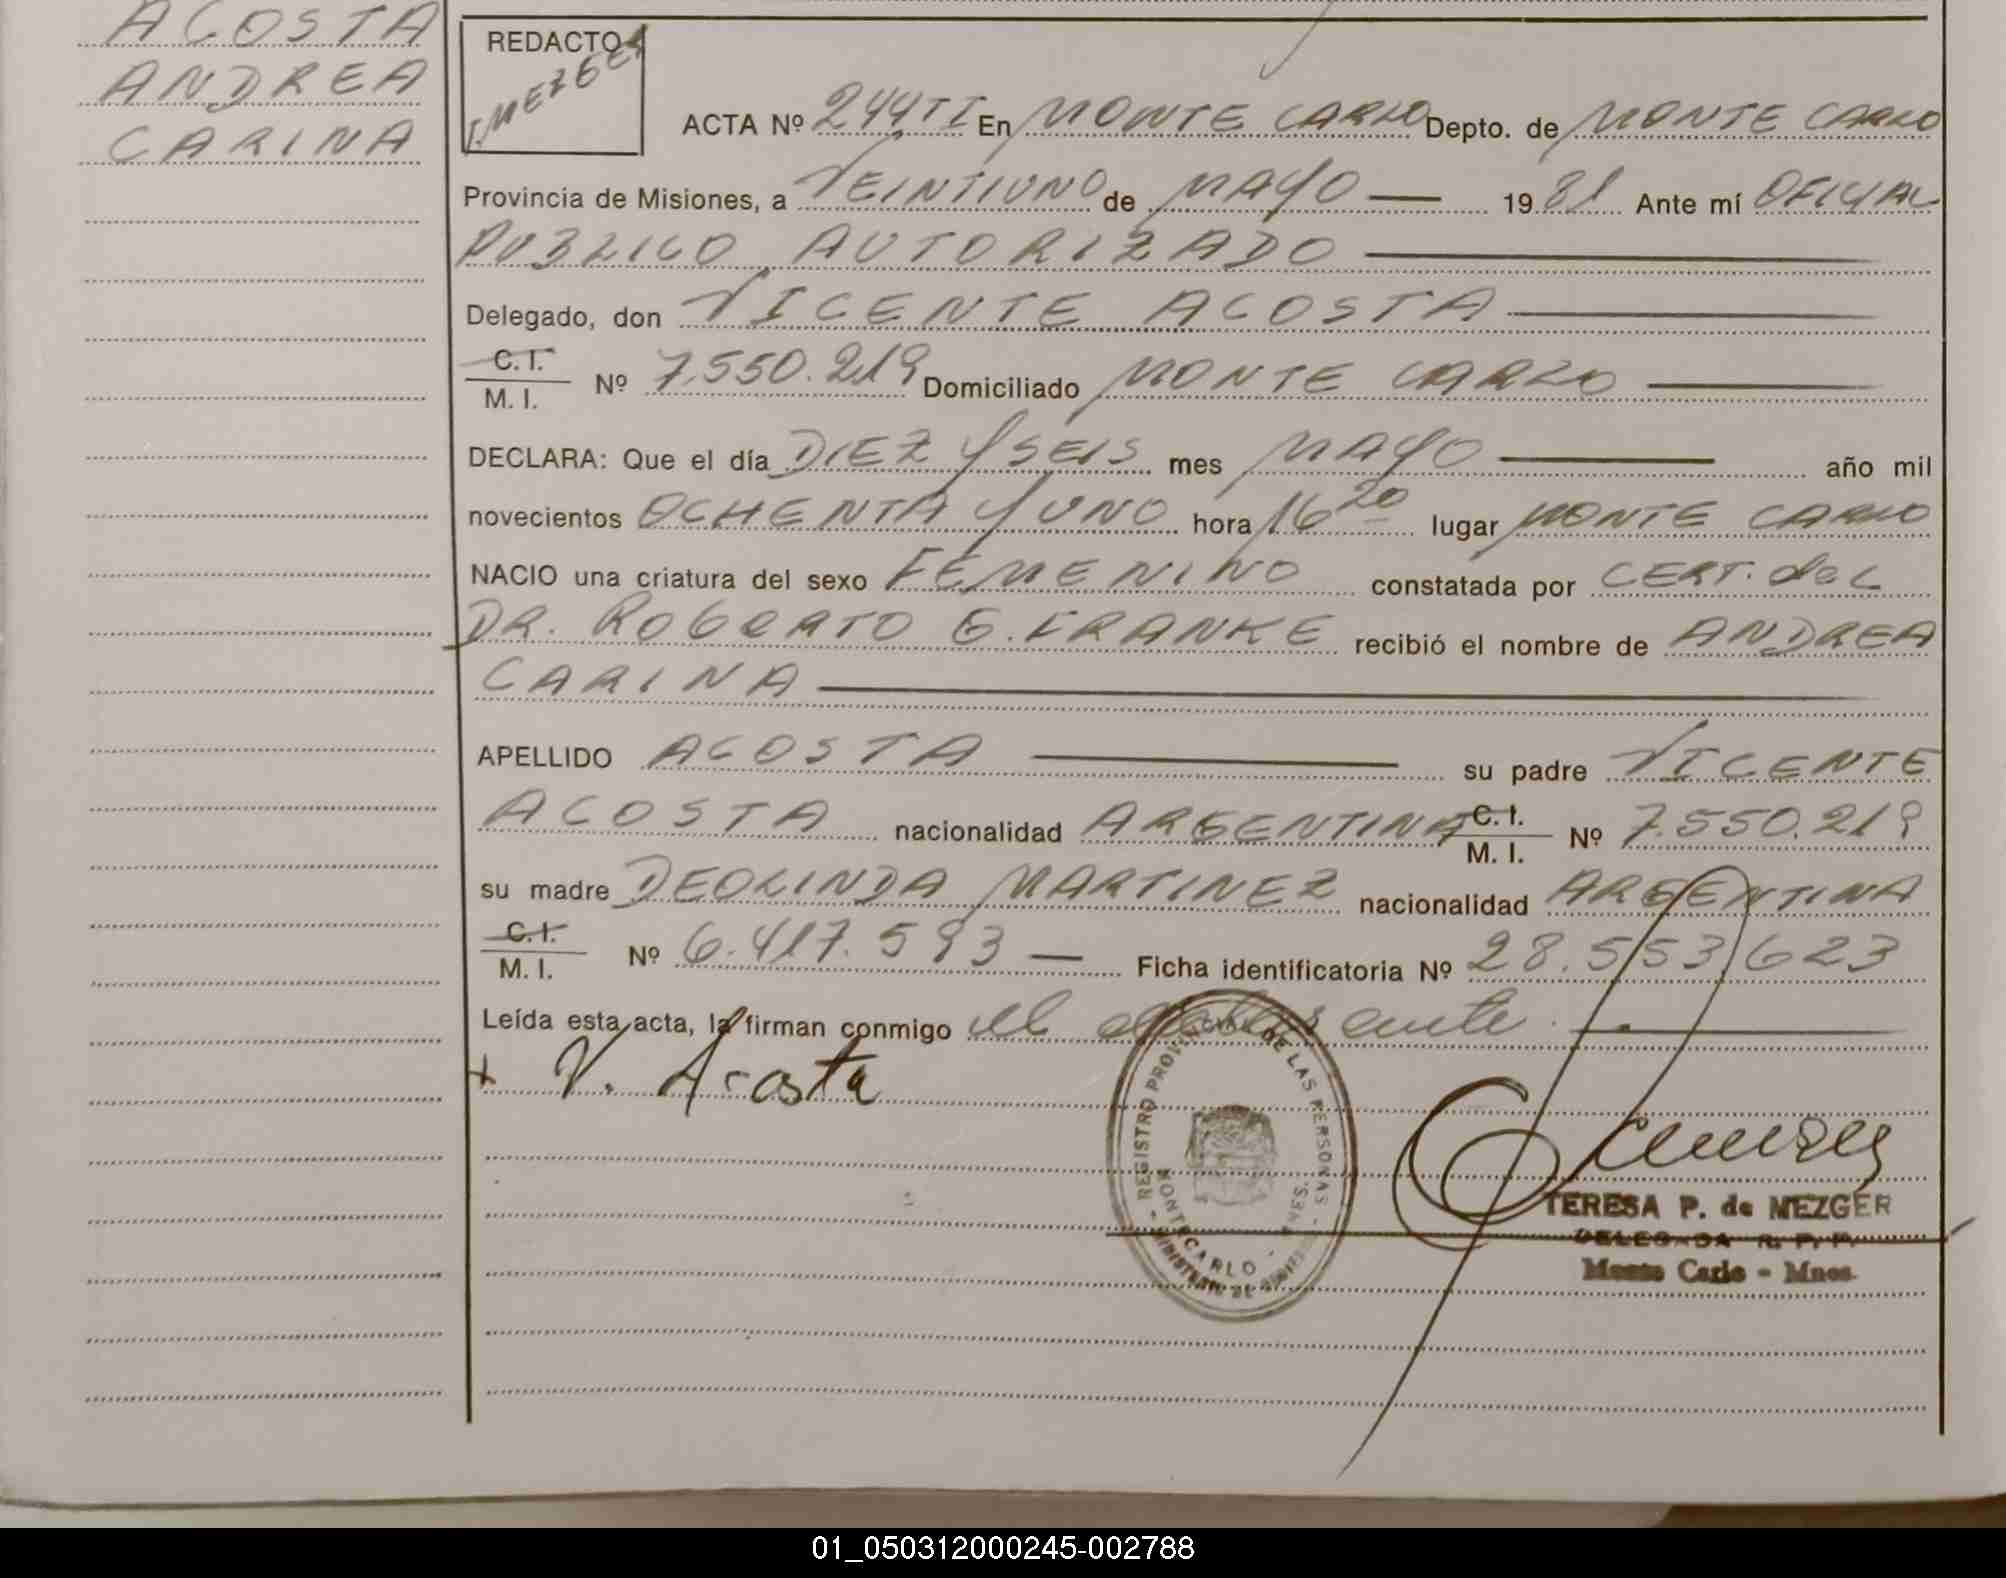 ACOSTA
ANDREA
CARINA
REDACTO
T. MEZGER
ACTA Nº 244 TI En MONTE CARLO Depto. de MONTE CARLO
Provincia de Misiones, a VEINTIUNO de MAYO — 1981 Ante mí OFICIAL
PUBLICO AUTORIZADO —
Delegado, don VICENTE ACOSTA —
C. I.
M. I. Nº 7.550.219 Domiciliado MONTE CARLO —
DECLARA: Que el día DIEZ Y SEIS mes MAYO — año mil
novecientos OCHENTA Y UNO hora 16 20 lugar MONTE CARLO
NACIO una criatura del sexo FEMENINO constatada por CERT. del
DR. ROBERTO G. FRANKE recibió el nombre de ANDREA
CARINA —
APELLIDO ACOSTA — su padre VICENTE
ACOSTA nacionalidad ARGENTINA C. I. M. I. Nº 7.550.219
su madre DEOLINDA MARTINEZ nacionalidad ARGENTINA
C. I.
M. I. Nº 6.417.593 — Ficha identificatoria Nº 28.553.623
Leída esta acta, la firman conmigo el declarante. —
+ V. Acosta
REGISTRO PROVINCIAL DE LAS PERSONAS
MONTECARLO - MNES.
TERESA P. de MEZGER
DELEGADA R. P. P.
Monte Carlo - Mnes.
01_050312000245-002788